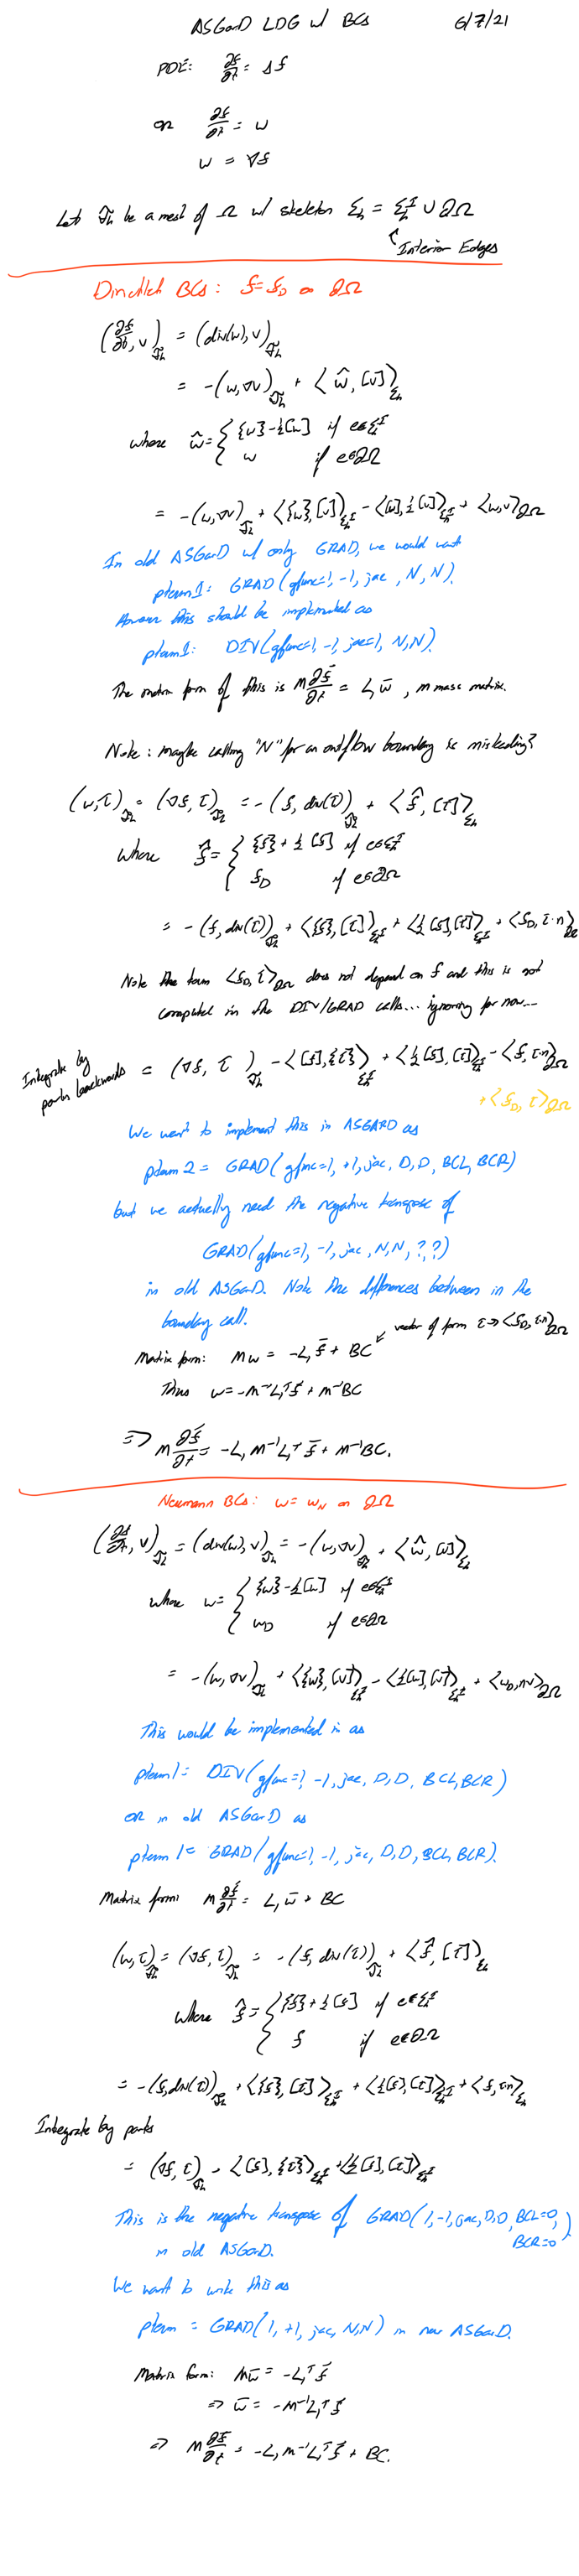 ASGarD LDG w/ BCs 6/7/21
PDE: ∂f/∂t = Δf
or ∂f/∂t = w
w = ∇f
Let 𝒯h be a mesh of Ω w/ skeleton Σh = Σh^I ∪ ∂Ω
Interior Edges
Dirichlet BCs: f = f_D on ∂Ω
(∂f/∂t, v)_𝒯h = (div(w), v)_𝒯h
= -(w, ∇v)_𝒯h + <ŵ, [v]>_Σh
where ŵ = { {w} - ½[w] if e∈Σh^I
w if e∈∂Ω
= -(w, ∇v)_𝒯h + <{w}, [v]>_Σh^I - <[w], ½[v]>_Σh^I + <w, v>_∂Ω
In old ASGarD w/ only GRAD, we would want
pterm1: GRAD(gfunc=1, -1, jac, N, N).
this should be implemented as
pterm1: DIV(gfunc=1, -1, jac=1, N, N).
The matrix form of this is M ∂f̄/∂t = L, w̄, M mass matrix.
Note: maybe calling "N" for an outflow boundary is misleading?
(w, τ)_𝒯h = (∇f, τ)_𝒯h = -(f, div(τ))_𝒯h + <f̂, [τ]>_Σh
where f̂ = { {f} + ½[f] if e∈Σh^I
f_D if e∈∂Ω
= -(f, div(τ))_𝒯h + <{f}, [τ]>_Σh^I + <½[f], [τ]>_Σh^I + <f_D, τ·n>_∂Ω
Note the term <f_D, τ>_∂Ω does not depend on f and this is not
computed in the DIV/GRAD calls... ignoring for now...
Integrate by
parts backwards = (∇f, τ)_𝒯h - <[f], {τ}>_Σh^I + <½[f], [τ]>_Σh^I - <f, τ·n>_∂Ω
+ <f_D, τ>_∂Ω
We want to implement this in ASGARD as
pterm2 = GRAD(gfunc=1, +1, jac, D, D, BCL, BCR)
but we actually need the negative transpose of
GRAD(gfunc=1, -1, jac, N, N, ?,?)
in old ASGarD. Note the differences between in the
boundary call.
vector of form τ→<f_D, τ·n>_∂Ω
Matrix form: Mw = -L,ᵀf̄ + BC
Thus w = -M⁻¹L,ᵀf̄ + M⁻¹BC
⇒ M ∂f̄/∂t = -L, M⁻¹L,ᵀ f̄ + M⁻¹BC.
Neumann BCs: w = w_N on ∂Ω
(∂f/∂t, v)_𝒯h = (div(w), v)_𝒯h = -(w, ∇v)_𝒯h + <ŵ, [v]>_Σh
where w = { {w} - ½[w] if e∈Σh^I
w_D if e∈∂Ω
= -(w, ∇v)_𝒯h + <{w}, [v]>_Σh^I - <½[w], [v]>_Σh^I + <w_D, nv>_∂Ω
This would be implemented in as
pterm1 = DIV(gfunc=1, -1, jac, D, D, BCL, BCR)
OR in old ASGarD as
pterm1 = GRAD(gfunc=1, -1, jac, D, D, BCL, BCR).
Matrix form: M ∂f̄/∂t = L, w̄ + BC
(w, τ)_𝒯h = (∇f, τ)_𝒯h = -(f, div(τ))_𝒯h + <f̂, [τ]>_Σh
where f̂ = { {f} + ½[f] if e∈Σh^I
f if e∈∂Ω
= -(f, div(τ))_𝒯h + <{f}, [τ]>_Σh^I + <½[f], [τ]>_Σh^I + <f, τ·n>_Σh
Integrate by parts
= (∇f, τ)_𝒯h - <[f], {τ}>_Σh^I + <½[f], [τ]>_Σh^I
This is the negative transpose of GRAD(1, -1, jac, D, D, BCL=0, BCR=0)
in old ASGarD.
We want to write this as
pterm = GRAD(1, +1, jac, N, N) in new ASGarD.
Matrix form: Mw̄ = -L,ᵀ f̄
⇒ w̄ = -M⁻¹L,ᵀ f̄
⇒ M ∂f̄/∂t = -L, M⁻¹L,ᵀ f̄ + BC.